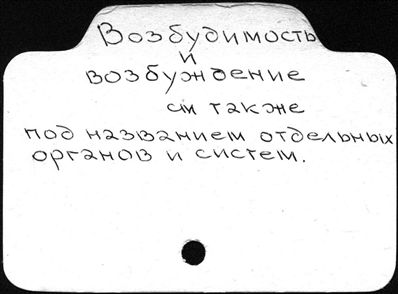 Возбудимость
и
возбуждение
см также
под названием отдельных
органов и систем.